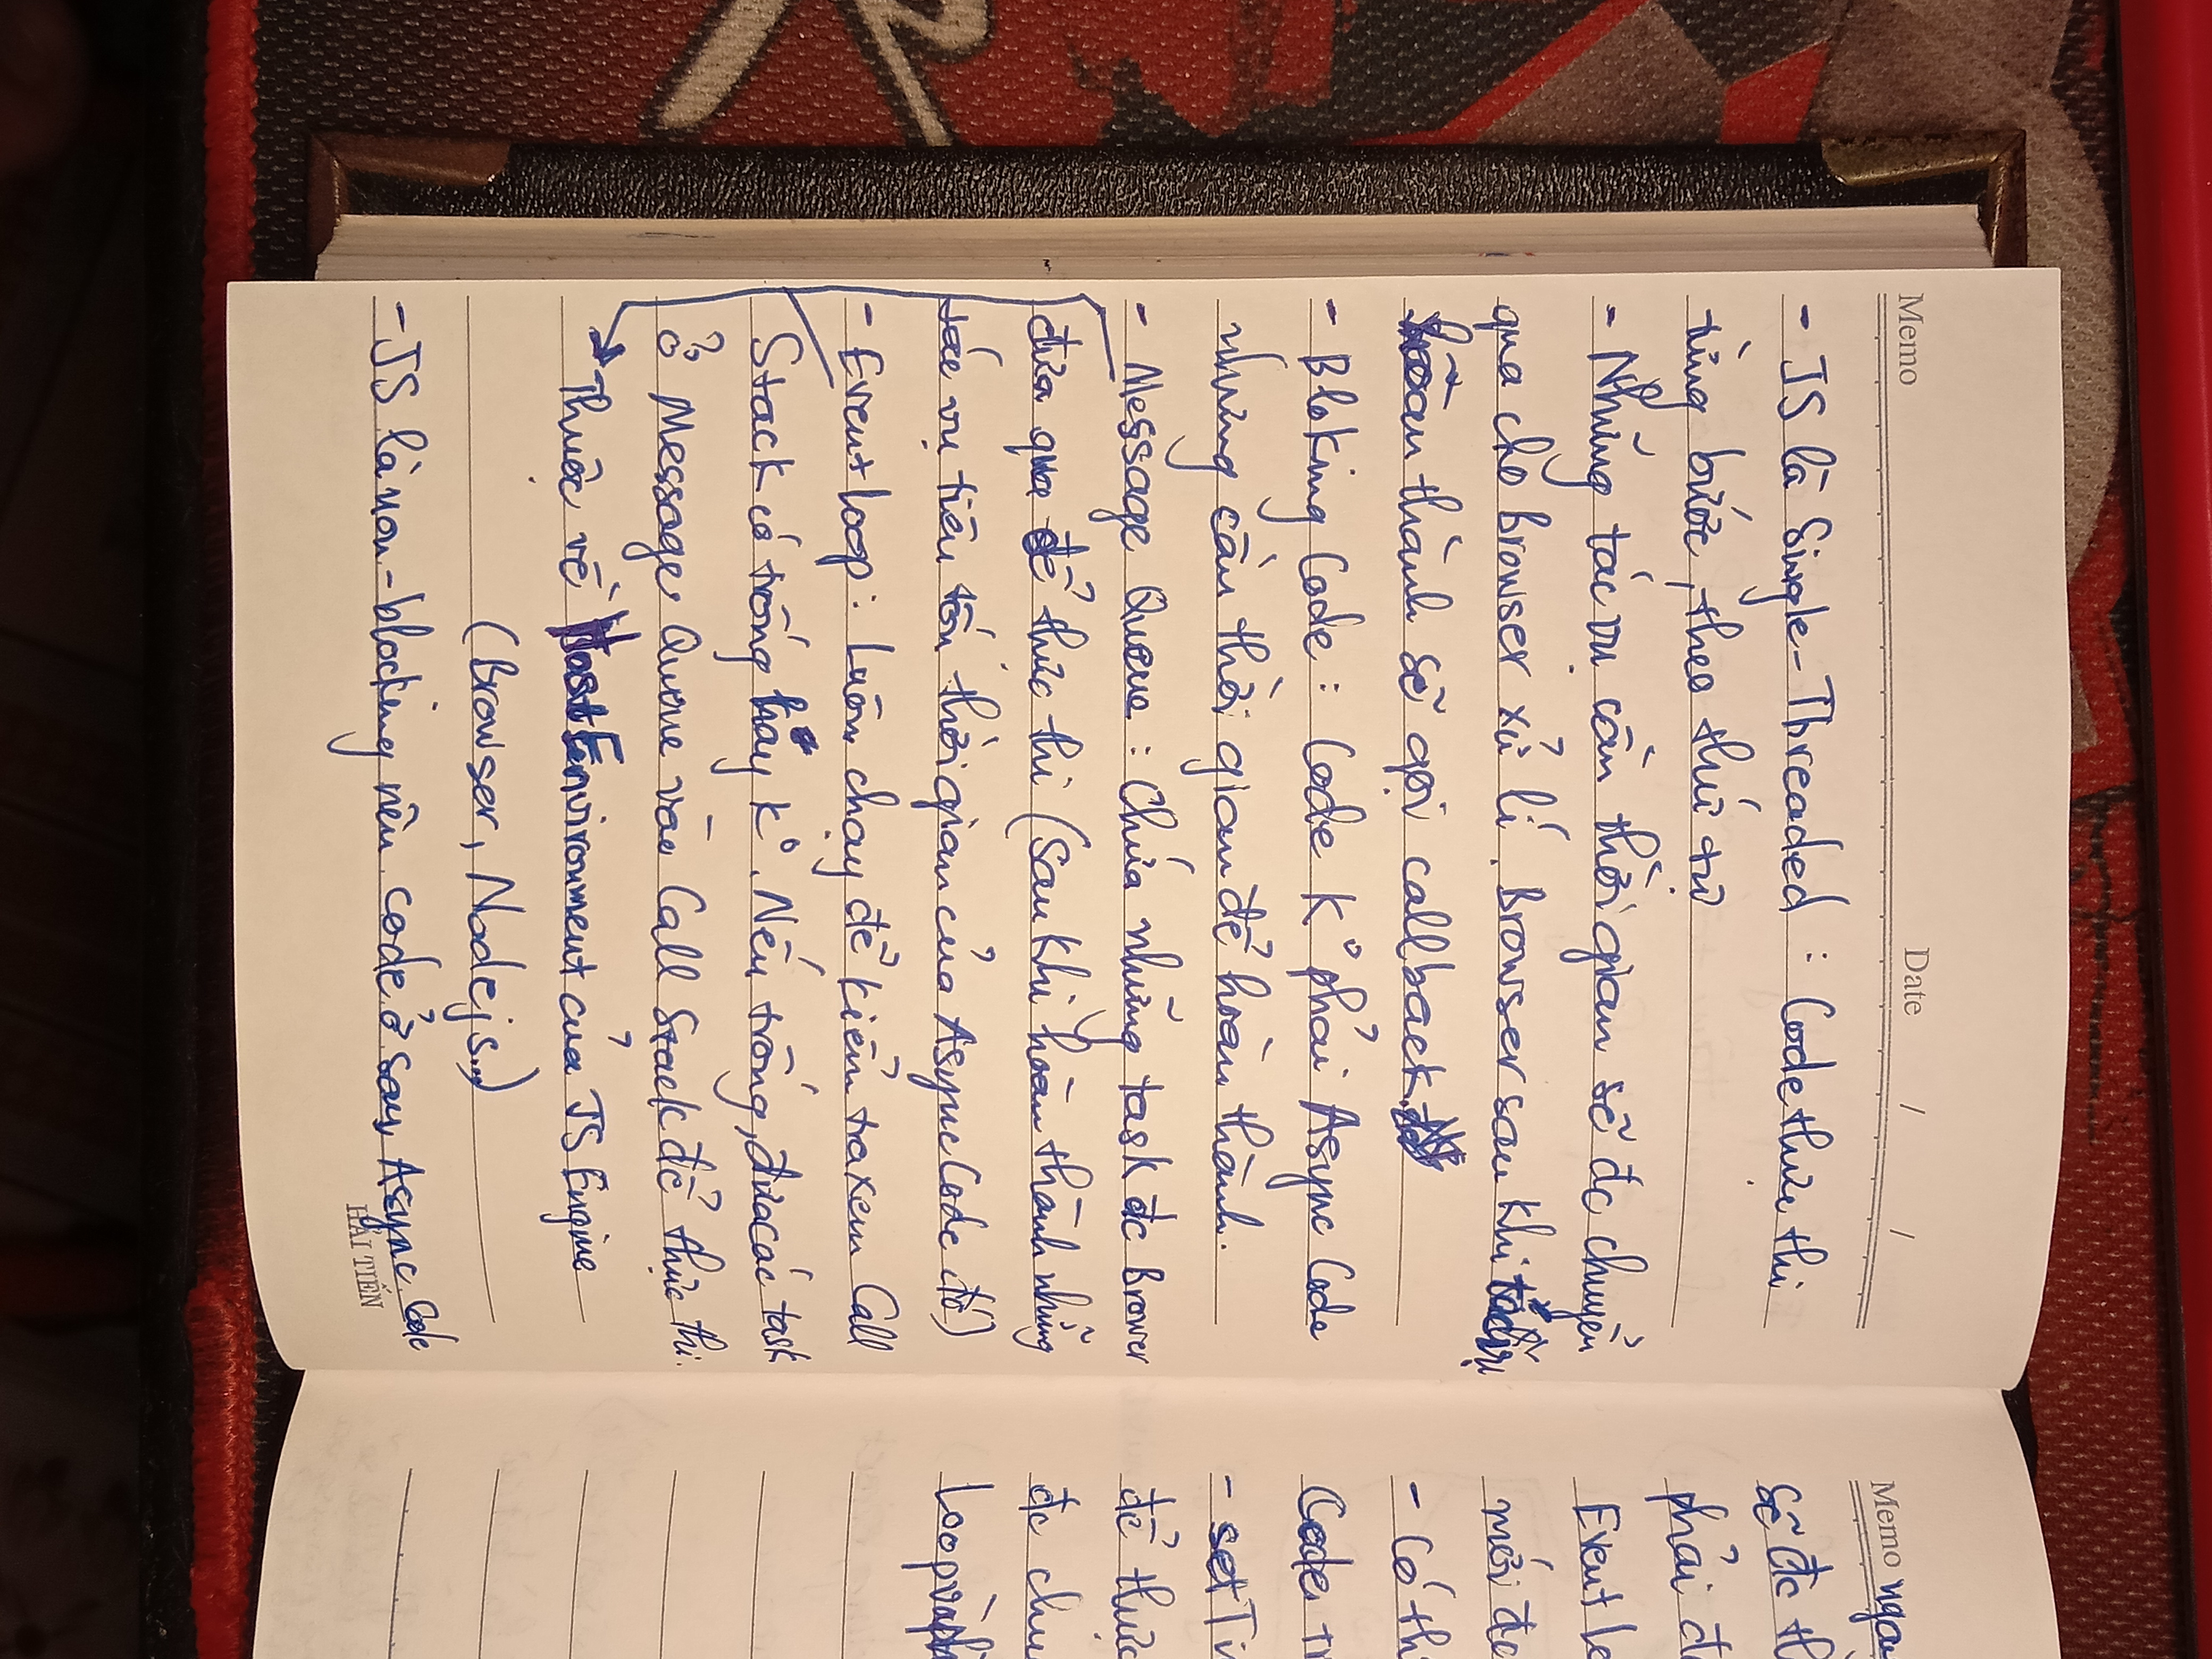 Memo Date / /
- JS là Single-Threaded : Code thực thi
từng bước, theo thứ tự
- Những tác vụ cần thời gian sẽ đc chuyển
qua cho Browser xử lí. Browser sau khi tác vụ
hoàn thành sẽ gọi callback
- Bloking Code : Code K° phải Async Code
nhưng cần thời gian để hoàn thành.
- Message Queue : Chứa những task đc Brower
đưa qua để thực thi (Sau khi hoàn thành những
tác vụ tiêu tốn thời gian của Async Code đó)
- Event loop : Luôn chạy để kiểm tra xem Call
Stack có trống hay K°. Nếu trống, đưa các task
ở Message Queue vào Call Stack để thực thi.
Thuộc về Host Environment của JS Engine
(Browser, Nodejs...)
- JS là non-blocking nên code ở sau Async Code
HẢI TIẾN
Memo
sẽ đc
phải
Event
mới đc
- Có
Code
- set
để thực
đc
Loop